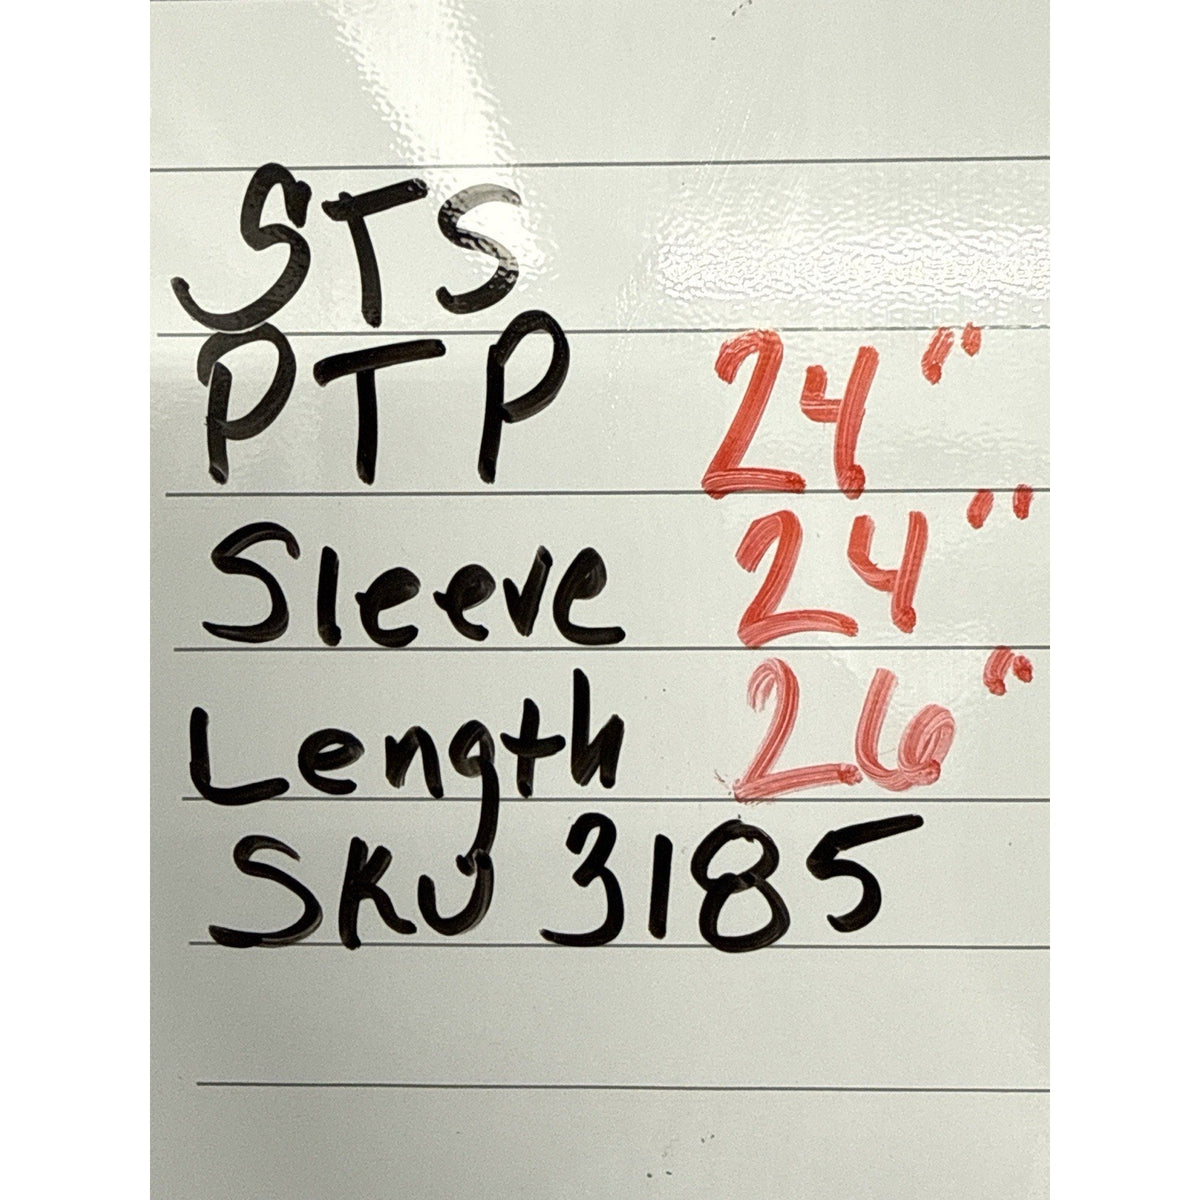 STS
PTP 24"
Sleeve 24"
Length 26"
SKU 3185